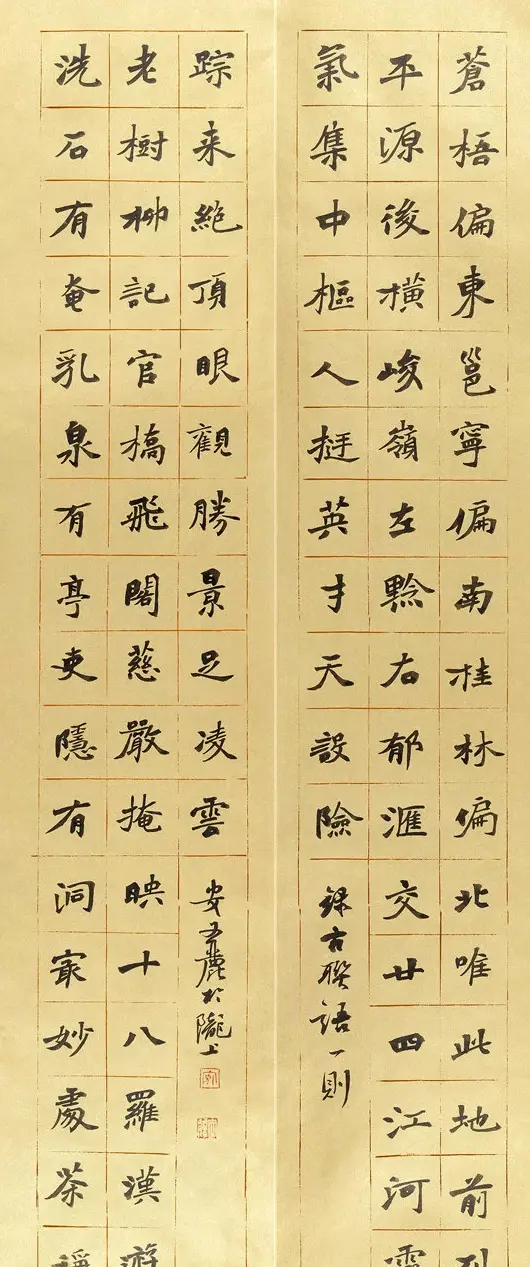 蒼梧偏東邕寧偏南桂林偏北唯此地前列
平源後橫峻嶺左黔右郁滙交廿四江河靈
氣集中樞人挺英才天設險
錄古聯語一則
洗石有奄乳泉有亭吏隱有洞㝡妙處茶稱
老樹柳記官橋飛閣慈嚴掩映十八羅漢游
踪来絕頂眼觀勝景足凌雲
安鹿於隴上